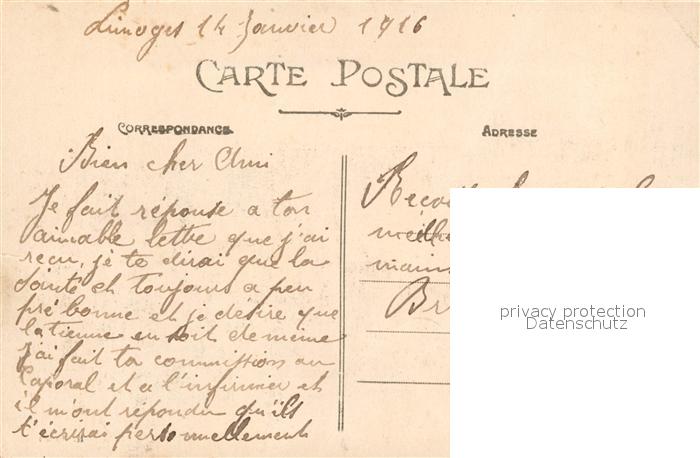 Limoges 14 Janvier 1916
CARTE POSTALE
CORRESPONDANCE
ADRESSE
Bien cher Ami
Je fait réponse a ton
aimable lettre que j'ai
recu, je te dirai que la
santé et toujours a peu
pré bonne et je désire que
la tienne en soit de meme
j'ai fait ta commissions au
Caporal et a l'infirmier et
il m'ont répondu qu'ils
t'écrirai personnellement
meille
mains
Br
privacy protection
Datenschutz